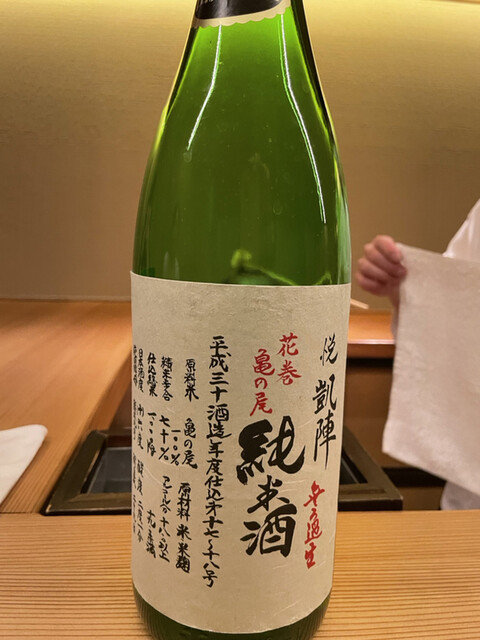 悦 凱陣
無ろ過生
花巻
亀の尾
純米酒
平成三十酒造年度仕込第十七~十八号
原料米 亀の尾 一〇〇%
原材料 米 米麹
精米歩合 七十%
アルコール分 十八%以上
日本酒度
酸度